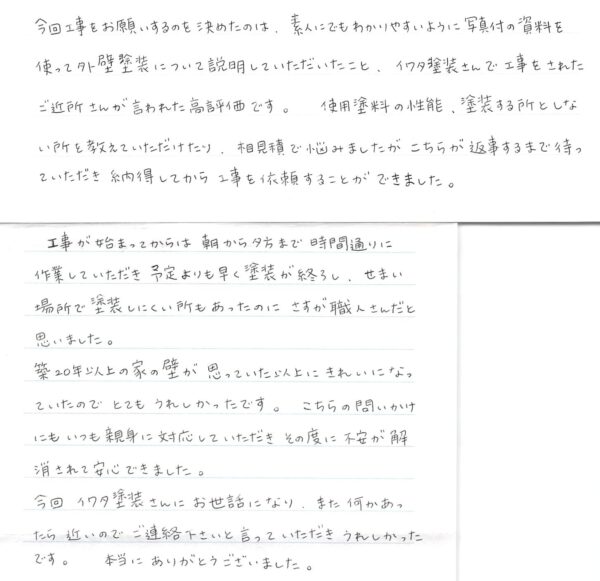 今回工事をお願いするのを決めたのは、素人にでもわかりやすいように写真付の資料を
使って外壁塗装について説明していただいたこと、イワタ塗装さんで工事をされた
ご近所さんが言われた高評価です。　使用塗料の性能、塗装する所としな
い所を教えていただけたり、相見積で悩みましたがこちらが返事するまで待っ
ていただき納得してから工事を依頼することができました。
工事が始まってからは朝から夕方まで時間通りに
作業していただき予定よりも早く塗装が終ろし、せまい
場所で塗装しにくい所もあったのにさすが職人さんだと
思いました。
築20年以上の家の壁が思っていた以上にきれいになっ
ていたのでとてもうれしかったです。　こちらの問いかけ
にもいつも親身に対応していただきその度に不安が解
消されて安心できました。
今回イワタ塗装さんにお世話になり、また何かあっ
たら近いのでご連絡下さいと言っていただきうれしかった
です。　本当にありがとうございました。